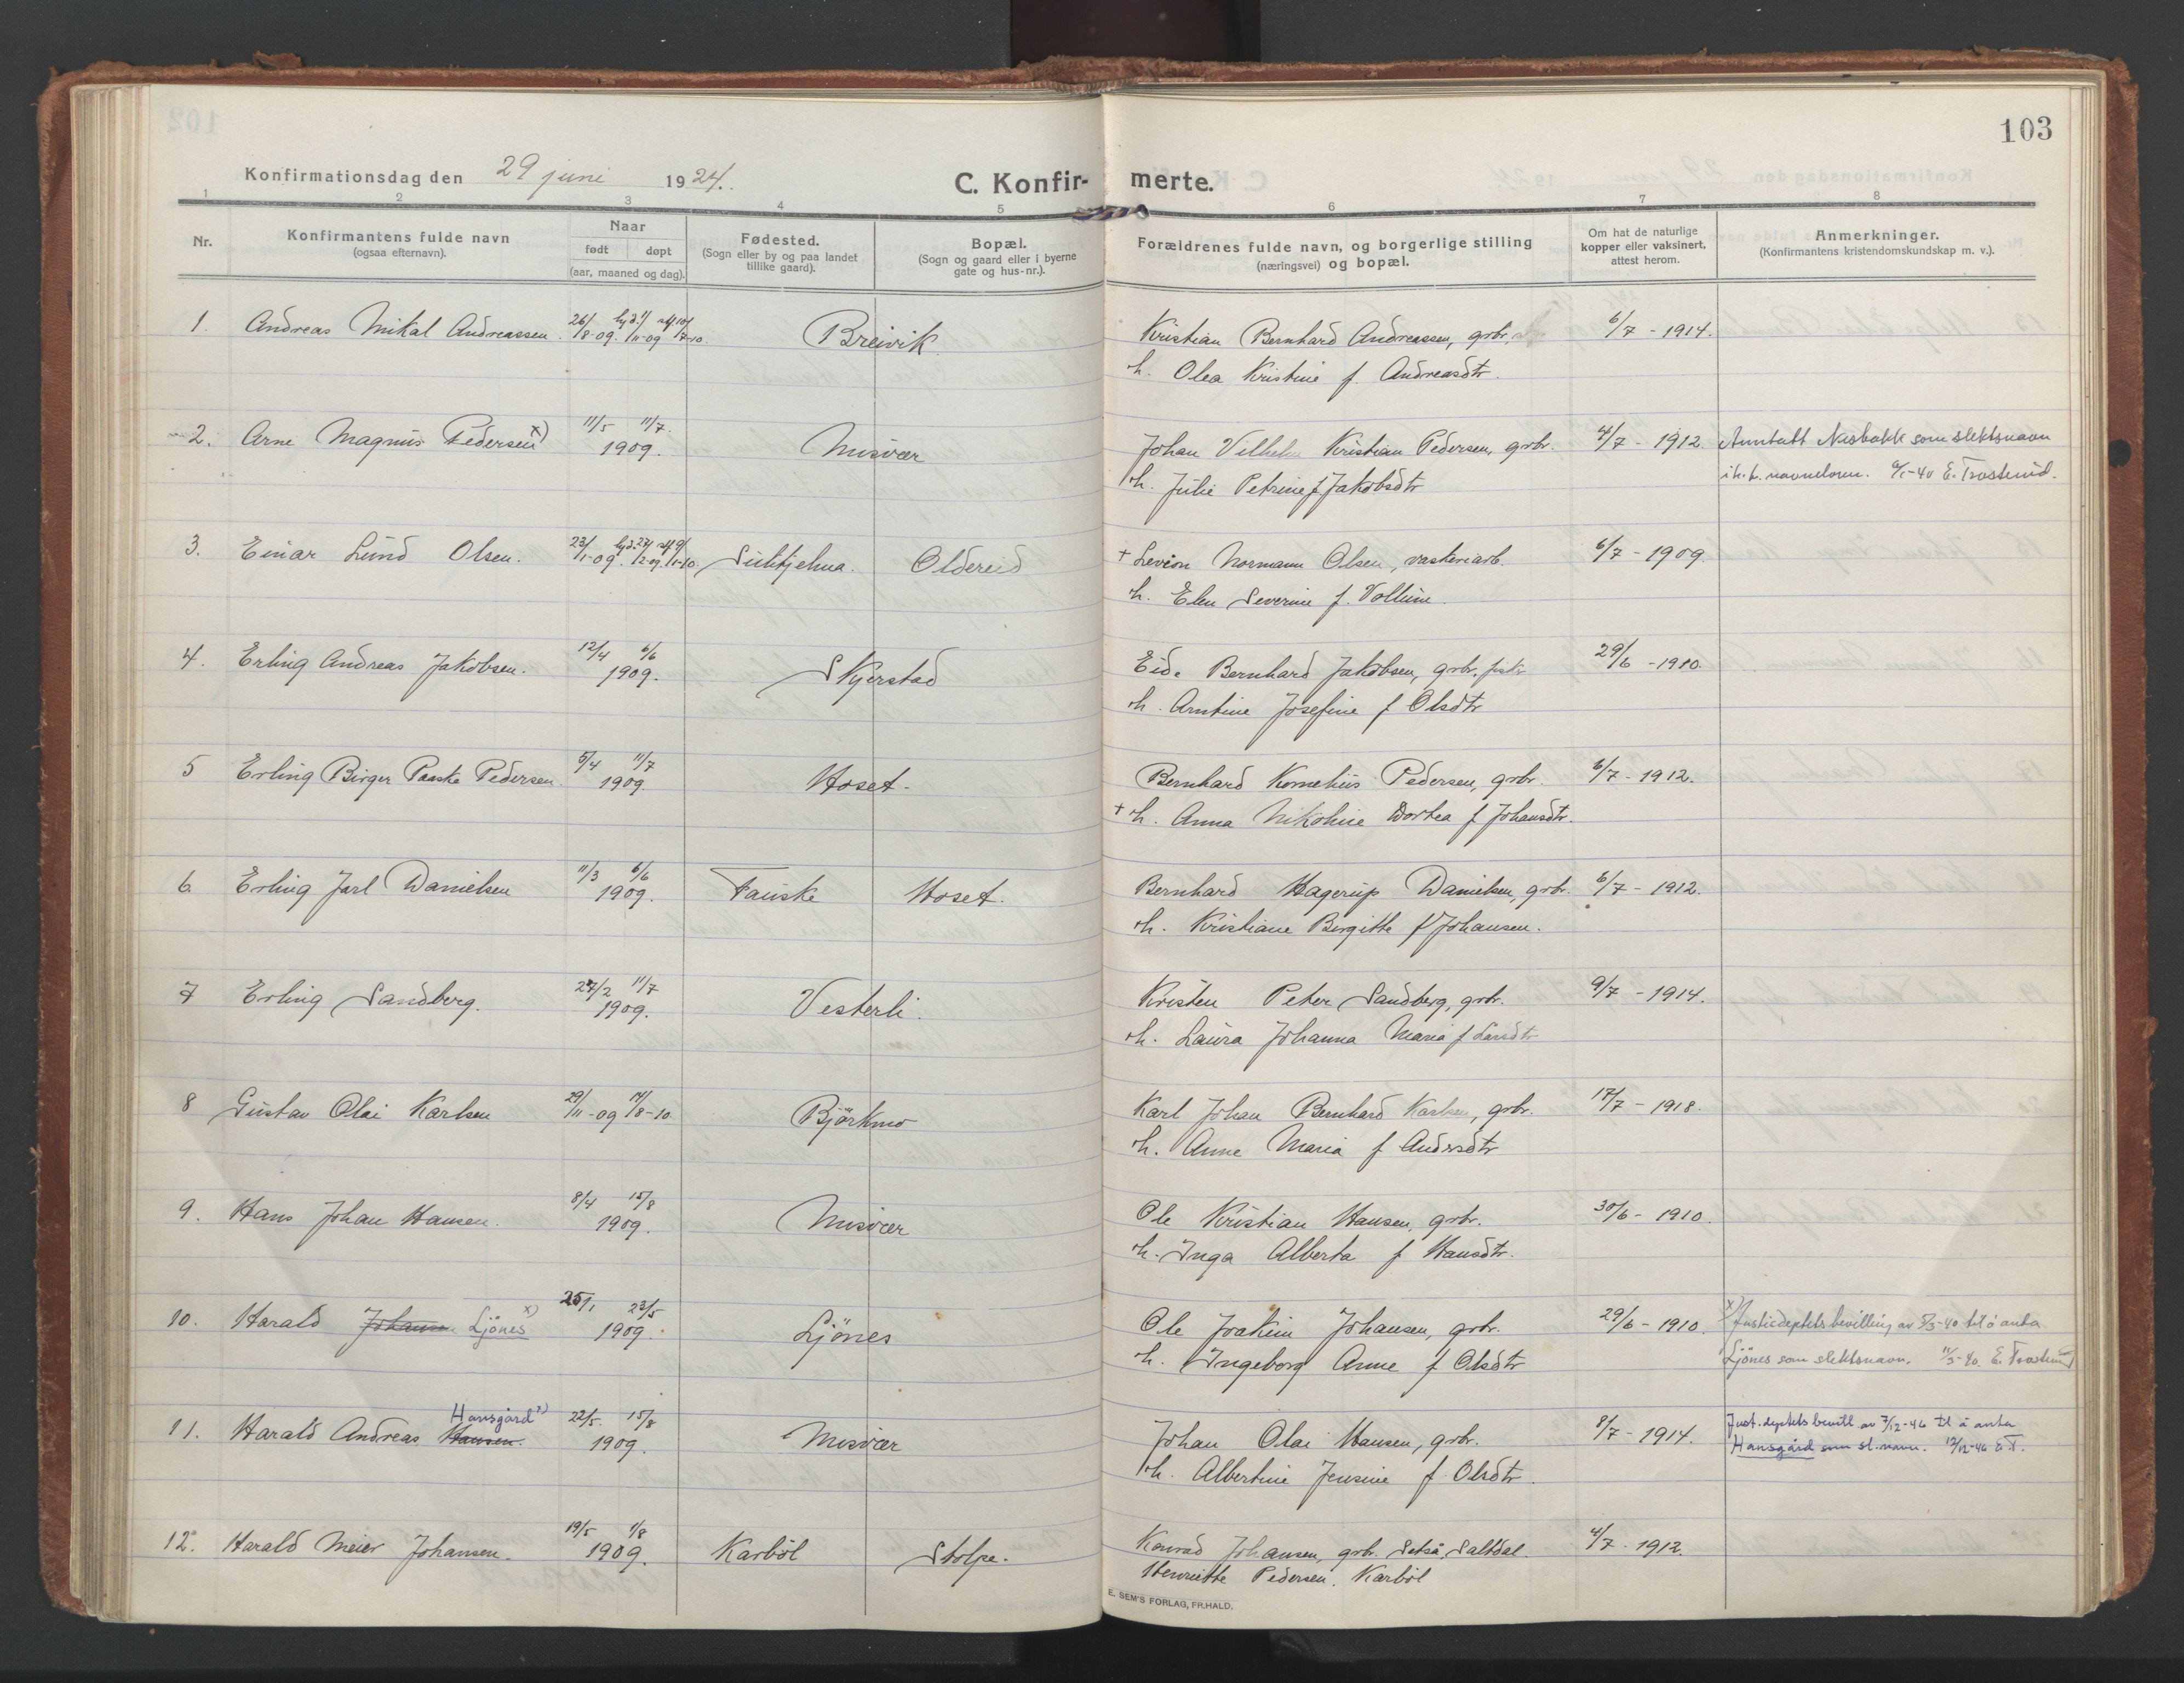 103
Konfirmationsdag den 29 juni 1924.
C. Konfir- merte.
1 2 3 4 5 6 7 8
Nr.
Konfirmantens fulde navn
(ogsaa efternavn).
Naar
født døpt
(aar, maaned og dag).
Fødested.
(Sogn eller by og paa landet
tillike gaard).
Bopæl.
(Sogn og gaard eller i byerne
gate og hus-nr.).
Forældrenes fulde navn, og borgerlige stilling
(næringsvei) og bopæl.
Om hat de naturlige
kopper eller vaksinert,
attest herom.
Anmerkninger.
(Konfirmantens kristendomskundskap m. v.).
1. Andreas Mikal Andreassen. 26/8-09. hjd. 1/11-09 10/7-10. Breivik Kristian Bernhard Andreassen, grbr. 6/7 - 1914.
h. Olea Kristine f. Andreasdtr.
2. Arne Magnus Pedersen x) 11/5 11/7. 1909. Misvær Johan Vilhelm Kristian Pedersen, grbr. 4/7 - 1912. Anntatt Nesbakk som slektsnavn
h. Julie Petrine f. Jakobsdtr i h.t. navneloven. -40 E. Trosterud.
3. Einar Lund Olsen. 23/1-09. hjd. Sulitjelma. Oldereid + Levion Normann Olsen, vaskeriarb. 6/7 - 1909.
h. Elen Severine f. Vollum.
4. Erling Andreas Jakobsen. 12/4 6/6 1909. Skjerstad Eide Bernhard Jakobsen, grbr. fisk. 29/6 - 1910.
h. Arntine Josefine f Olsdtr
5 Erling Birger Paaske Pedersen. 5/4 11/7 1909. Hoset. Bernhard Kornelius Pedersen, grbr. 6/7 - 1912.
+ h. Anna Nikoline Dortea f Johansdtr.
6. Erling Jarl Danielsen 11/3 6/6 1909. Fauske Hoset. Bernhard Hagerup Danielsen, grbr. 6/7 - 1912.
h. Kristiane Birgitte f Johansen.
7 Erling Sandberg. 27/2 11/7 1909. Vesterli. Kristen Peter Sandberg, grbr. 9/7 - 1914.
h. Laura Johanna Maria f Larsdtr
8 Gustav Olai Karlsen 29/11-09 14/8-10. Björkmo Karl Johan Bernhard Karlsen, grbr. 17/7 - 1918.
h. Anne Maria f Andersdtr
9. Hans Johan Hansen. 8/4 15/8 1909. Misvær Ole Kristian Hansen, grbr. 30/6 - 1910.
h. Inga Alberta f Hansdtr.
10. Harald Johansen Ljönes x) 25/1 23/5 1909. Ljönes Ole Joakim Johansen, grbr. 29/6 - 1910. x) Justisdeptets bevilling av 5/3-40 til å anta
h. Ingeborg Anne f Olsdtr Ljönes som slektsnavn. 11/3-40. E. Trosterud
Hansgård x)
11. Harald Andreas Hansen. 22/5. 15/8 1909. Misvær Johan Olai Hansen, grbr. 8/7 - 1914. Just. deptets bevill av 7/12-46 til å anta
h. Albertine Jensine f. Olsdtr. Hansgård som sl.navn. 12/12-46 E.T.
12. Harald Meier Johansen. 19/5 1/8 1909. Karböl Stolpe. Konrad Johansen, grbr. Setså, Saltdal. 4/7 - 1912.
Henriette Pedersen. Karböl
E. SEM'S FORLAG, FR.HALD.